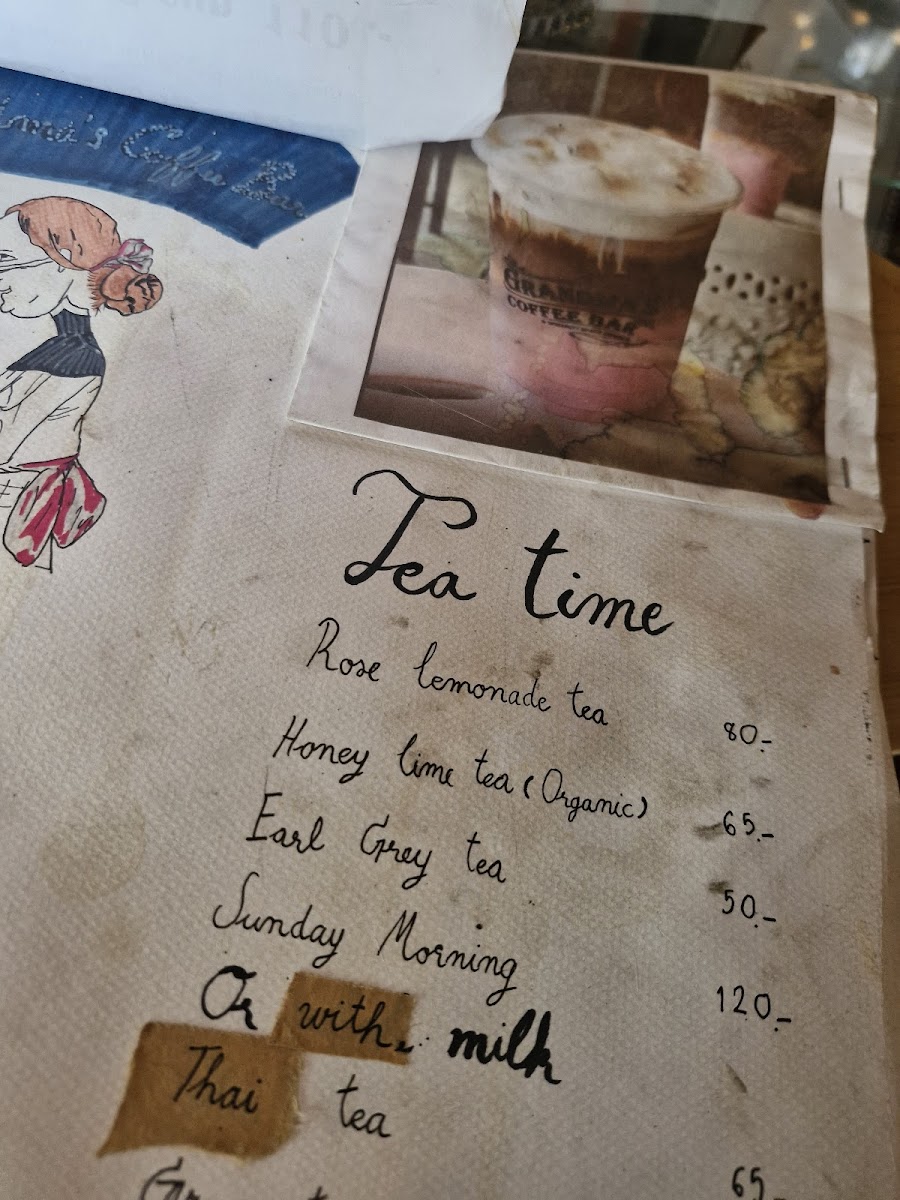 Coffee Bar
GRANDMA'S
COFFEE BAR
Tea time
Rose lemonade tea 80.-
Honey lime tea (Organic) 65.-
Earl Grey tea 50.-
Sunday Morning 120.-
Or with milk
Thai tea 65